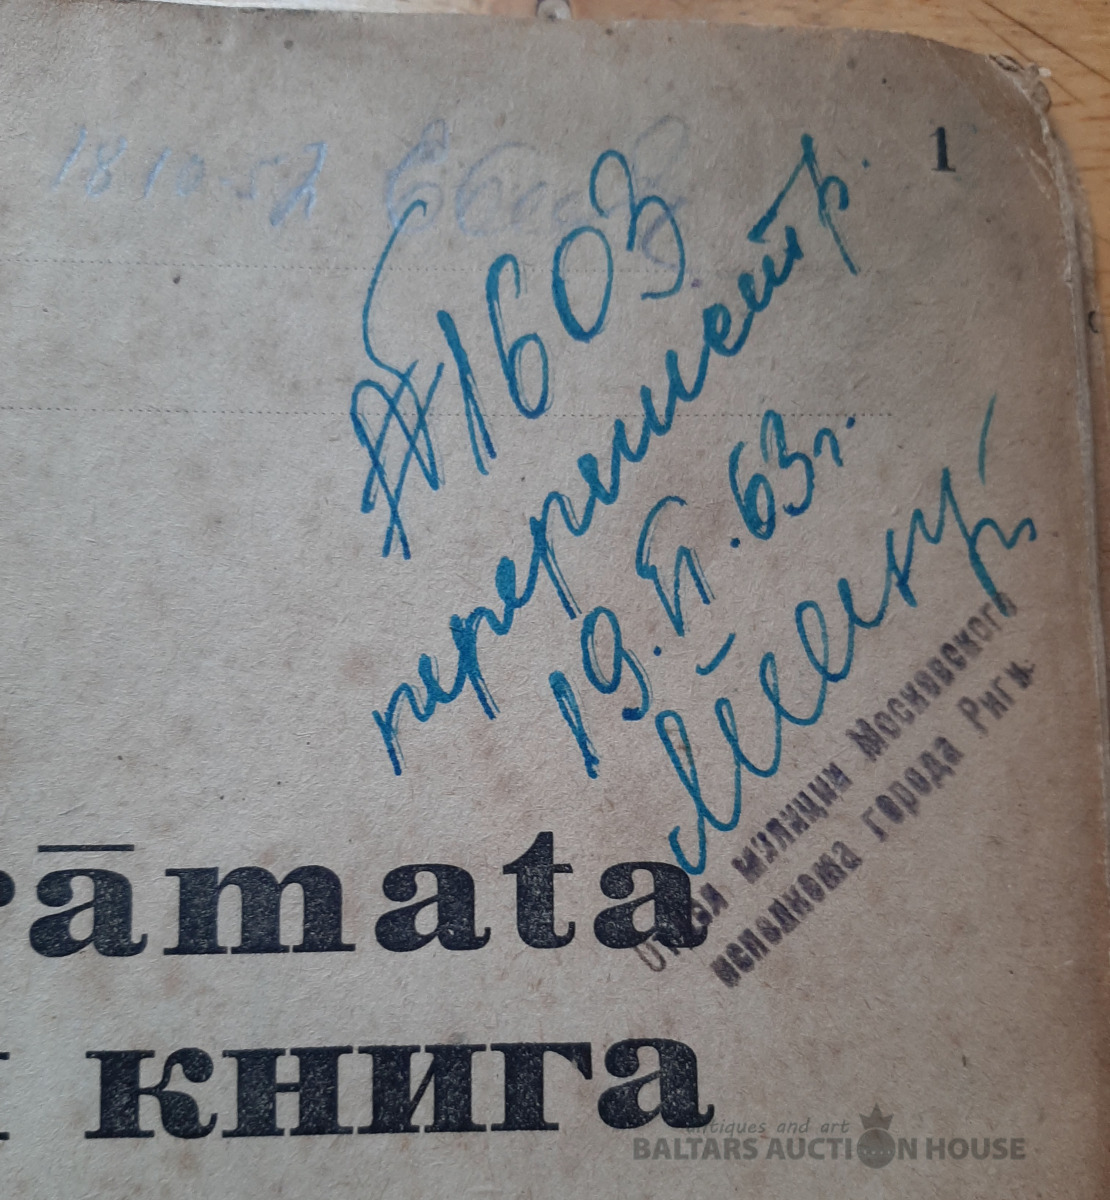 1
18 10 52
А 1603
перерегистр.
19.VI.63г.
Отдел милиции Московского
исполкома города Риги.
āmata
книга
antiques and art
BALTARS AUCTION HOUSE